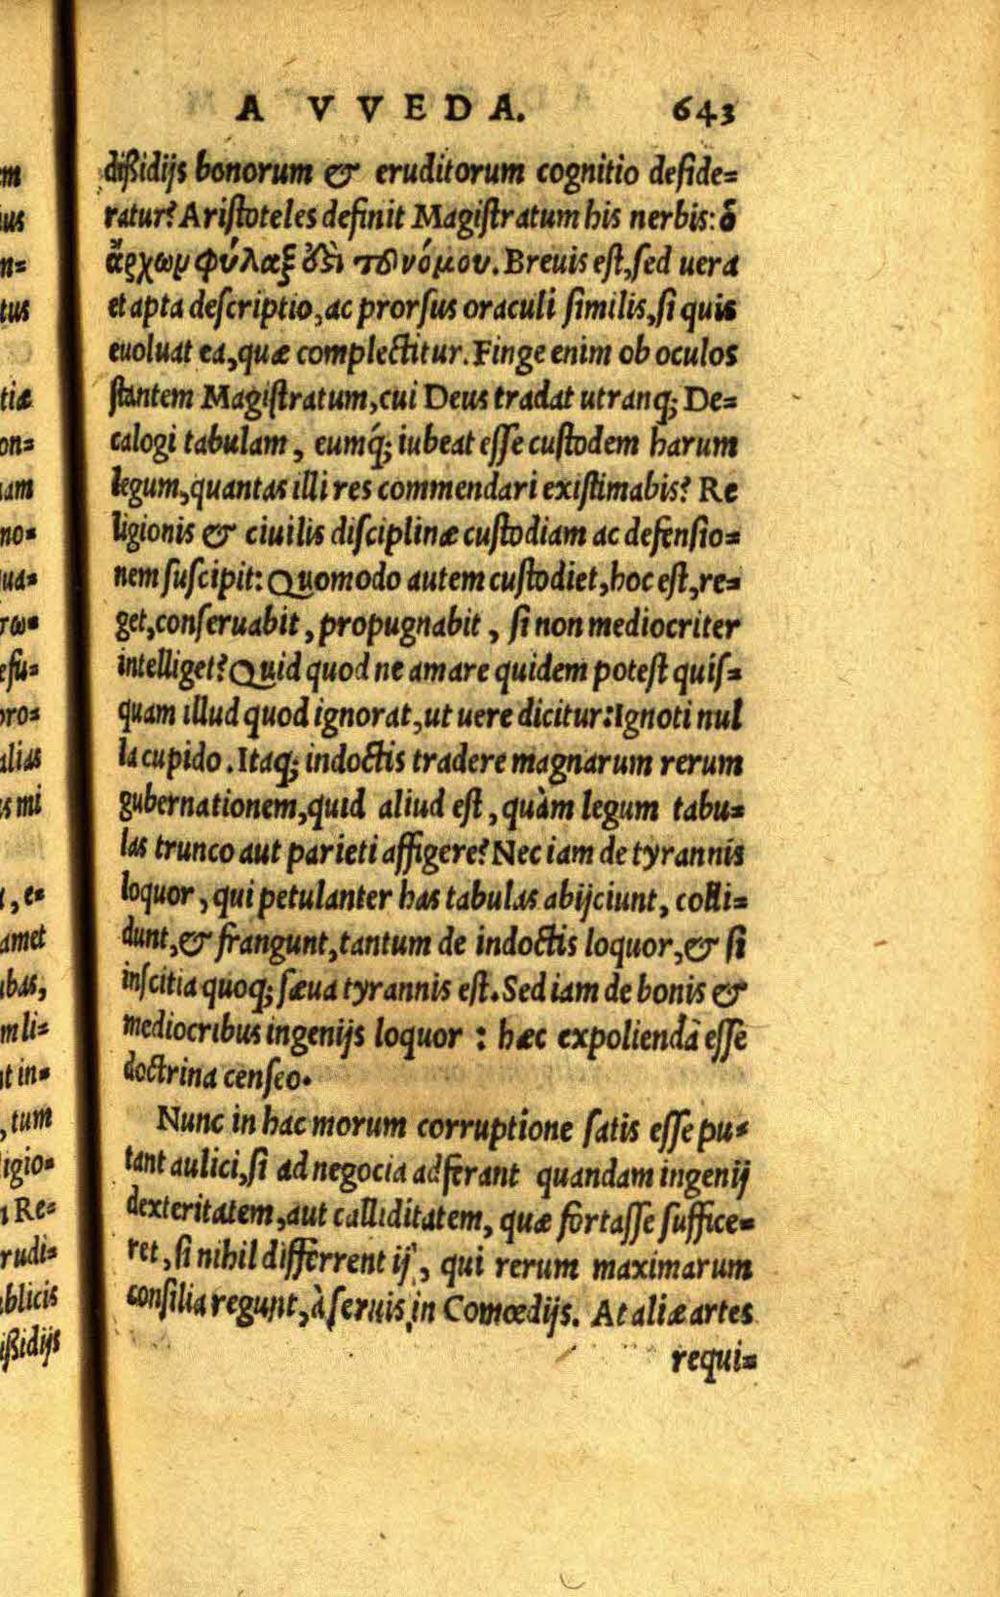 A VVEDA. 643
dißidijs bonorum & eruditorum cognitio deside=
ratur? Aristoteles definit Magistratum his nerbis: ὁ
ἄρχων φύλαξ ἐϛὶ τοῦ νόμου. Breuis est, sed uera
et apta descriptio, ac prorsus oraculi similis, si quis
euoluat ea, quæ complectitur. Finge enim ob oculos
stantem Magistratum, cui Deus tradat utranq; De=
calogi tabulam, eumq́; iubeat esse custodem harum
legum, quantas illi res commendari existimabis? Re
ligionis & ciuilis disciplinæ custodiam ac defensio=
nem suscipit: Quomodo autem custodiet, hoc est, re=
get, conseruabit, propugnabit, si non mediocriter
intelliget? Quid quod ne amare quidem potest quis=
quam illud quod ignorat, ut uere dicitur: Ignoti nul
la cupido. Itaq; indoctis tradere magnarum rerum
gubernationem, quid aliud est, quàm legum tabu=
las trunco aut parieti affigere? Nec iam de tyrannis
loquor, qui petulanter has tabulas abijciunt, colli=
dunt, & frangunt, tantum de indoctis loquor, & si
inscitia quoq; sæua tyrannis est. Sed iam de bonis &
mediocribus ingenijs loquor : hæc expoliendā esse
doctrina censeo.
Nunc in hac morum corruptione satis esse pu=
tant aulici, si ad negocia adferant quandam ingenij
dexteritatem, aut calliditatem, quæ fortasse suffice=
ret, si nihil differrent ij, qui rerum maximarum
consilia regunt, à seruis in Comœdijs. At aliæ artes
requi=
m
us
n=
tus
tiæ
on=
am
no=
ua=
τω=
efu=
pro=
alias
s mi
, e=
amet
bas,
m li=
t in=
, tum
igio=
Re=
rudi=
blicis
ißidijs